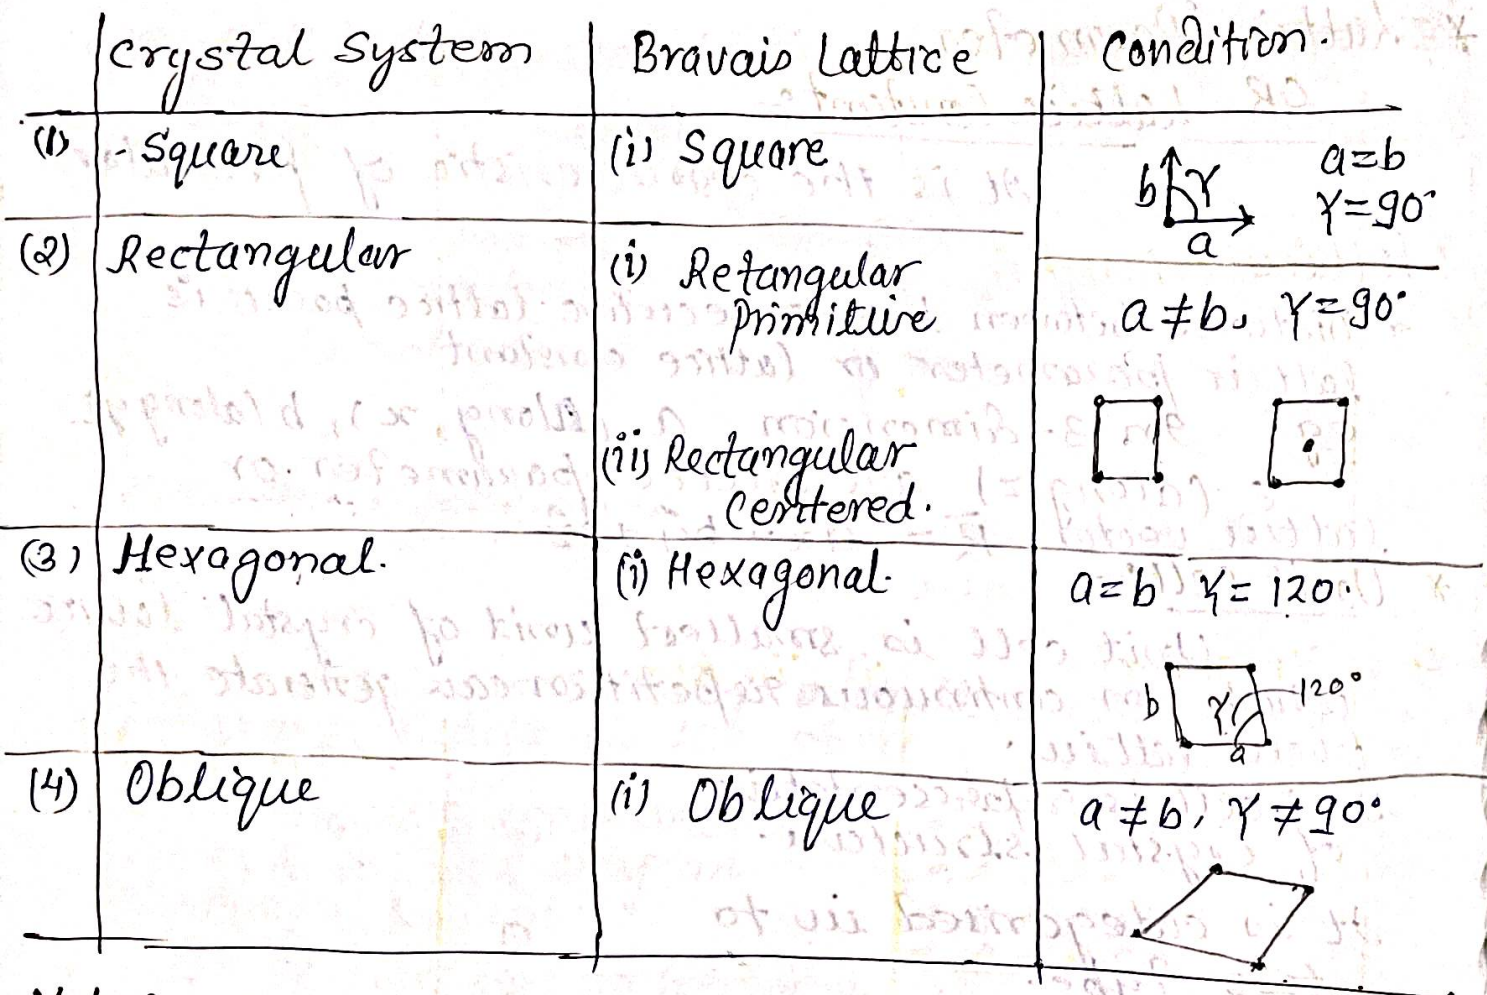 Crystal System Bravais Lattice Condition.
(1) - Square (i) Square a=b
b γ γ=90°
a
(2) Rectangular (i) Retangular
Primitive a≠b, γ=90°
(ii) Rectangular
Centered.
(3) Hexagonal. (i) Hexagonal. a=b γ=120.
b γ 120°
a
(4) Oblique (i) Oblique a≠b, γ≠90°